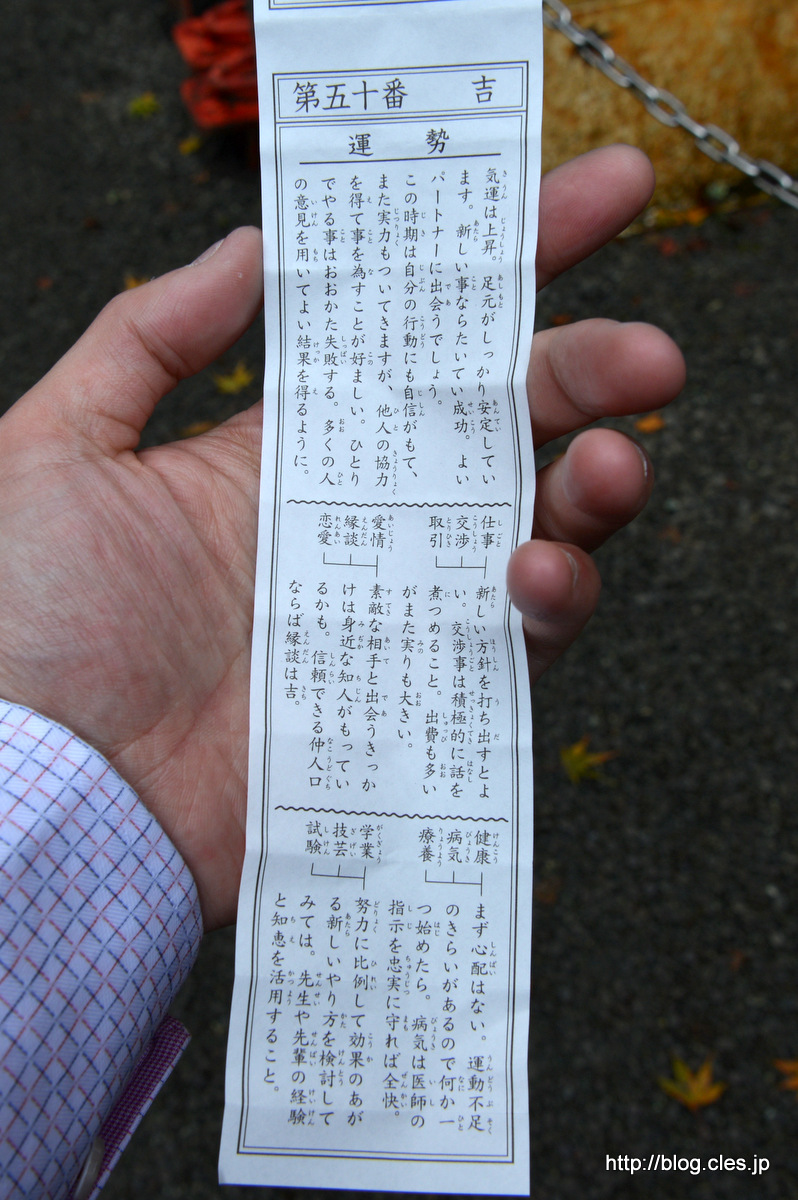 第五十番 吉
運勢
気運は上昇。足元がしっかり安定してい
ます。新しい事ならたいてい成功。よい
パートナーに出会うでしょう。
この時期は自分の行動にも自信がもて、
また実力もついてきますが、他人の協力
を得て事を為すことが好ましい。ひとり
でやる事はおおかた失敗する。多くの人
の意見を用いてよい結果を得るように。
仕事
交渉
取引
新しい方針を打ち出すとよ
い。交渉事は積極的に話を
煮つめること。出費も多い
がまた実りも大きい。
愛情
縁談
恋愛
素敵な相手と出会うきっか
けは身近な知人がもってい
るかも。信頼できる仲人口
ならば縁談は吉。
健康
病気
療養
まず心配はない。運動不足
のきらいがあるので何か一
つ始めたら。病気は医師の
指示を忠実に守れば全快。
学業
技芸
試験
努力に比例して効果のあが
る新しいやり方を検討して
みては。先生や先輩の経験
と知恵を活用すること。
http://blog.cles.jp